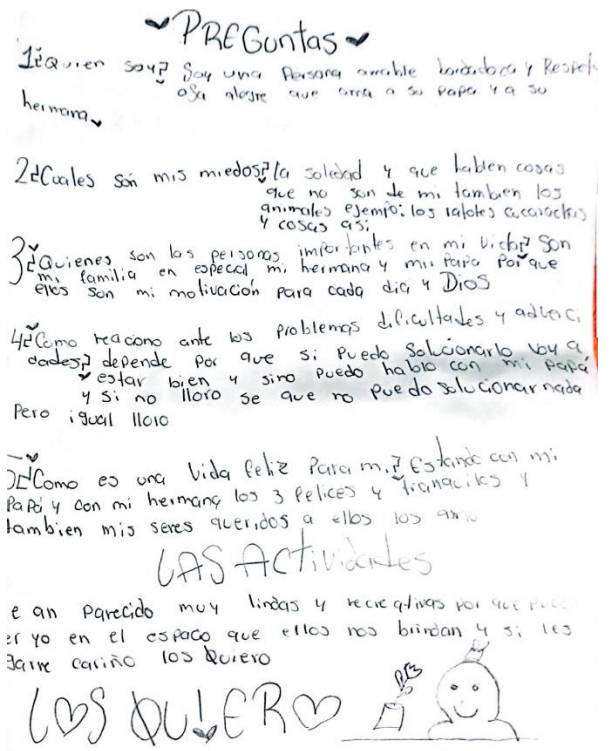 PREGuntas
1¿Quien soy? Soy una Persona amable bondadosa y Respet
osa alegre que ama a su Papa y a su
hermana
2¿Cuales son mis miedos? la soledad y que hablen cosas
que no son de mi tambien los
animales ejemplo: los ratones cucarachas
y cosas asi,
3¿Quienes son las personas importantes en mi vida? Son
mi familia en especial mi hermana y mi Papa Por que
ellos son mi motivación para cada dia y Dios
4¿Como reaciono ante los problemas dificultades y adverci
dades? depende Por que si Puedo Solucionarlo voy a
estar bien y sino puedo hablo con mi Papá
y si no lloro se que no puedo solucionar nada
Pero igual lloro
¿Como es una Vida feliz Para mi? Estando con mi
PaPá y con mi hermana los 3 felices y tranquilos y
tambien mis seres queridos a ellos los amo
LAS Actividades
e an Parecido muy lindas y recreativas por que
er yo en el espacio que ellos nos brindan y si les
cariño los Quiero
LOS QUIERO